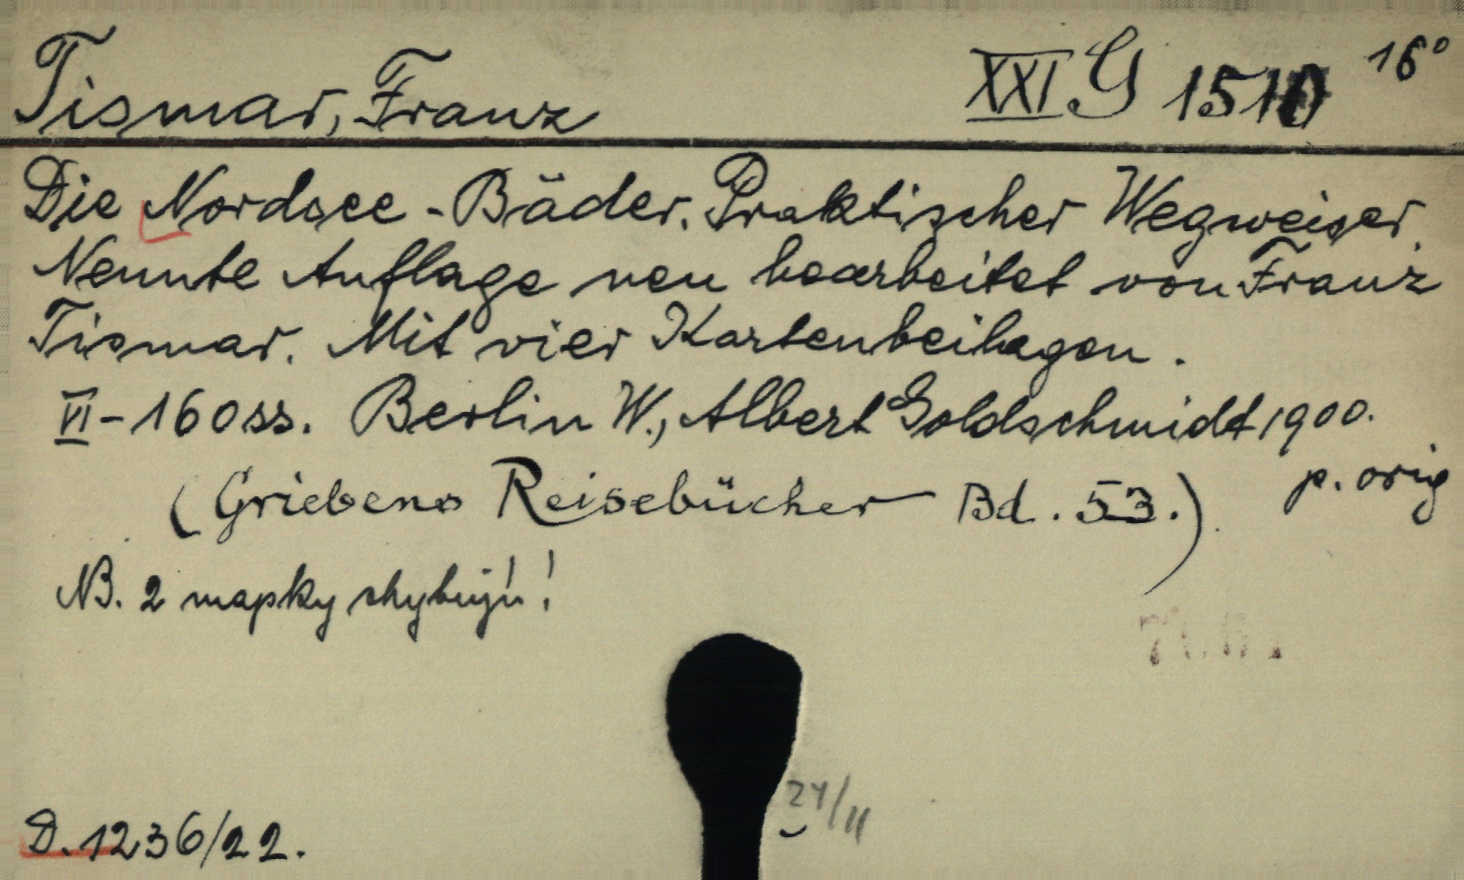 Tismar, Franz XXI G 1510 16°
Die Nordsee-Bäder. Praktischer Wegweiser.
Neunte Auflage neu bearbeitet von Franz
Tismar. Mit vier Kartenbeilagen.
VI-160 ss. Berlin W., Albert Goldschmidt 1900.
(Griebens Reisebücher Bd. 53.) p. orig
NB. 2 mapky chybují!
24/11
D. 1236/22.